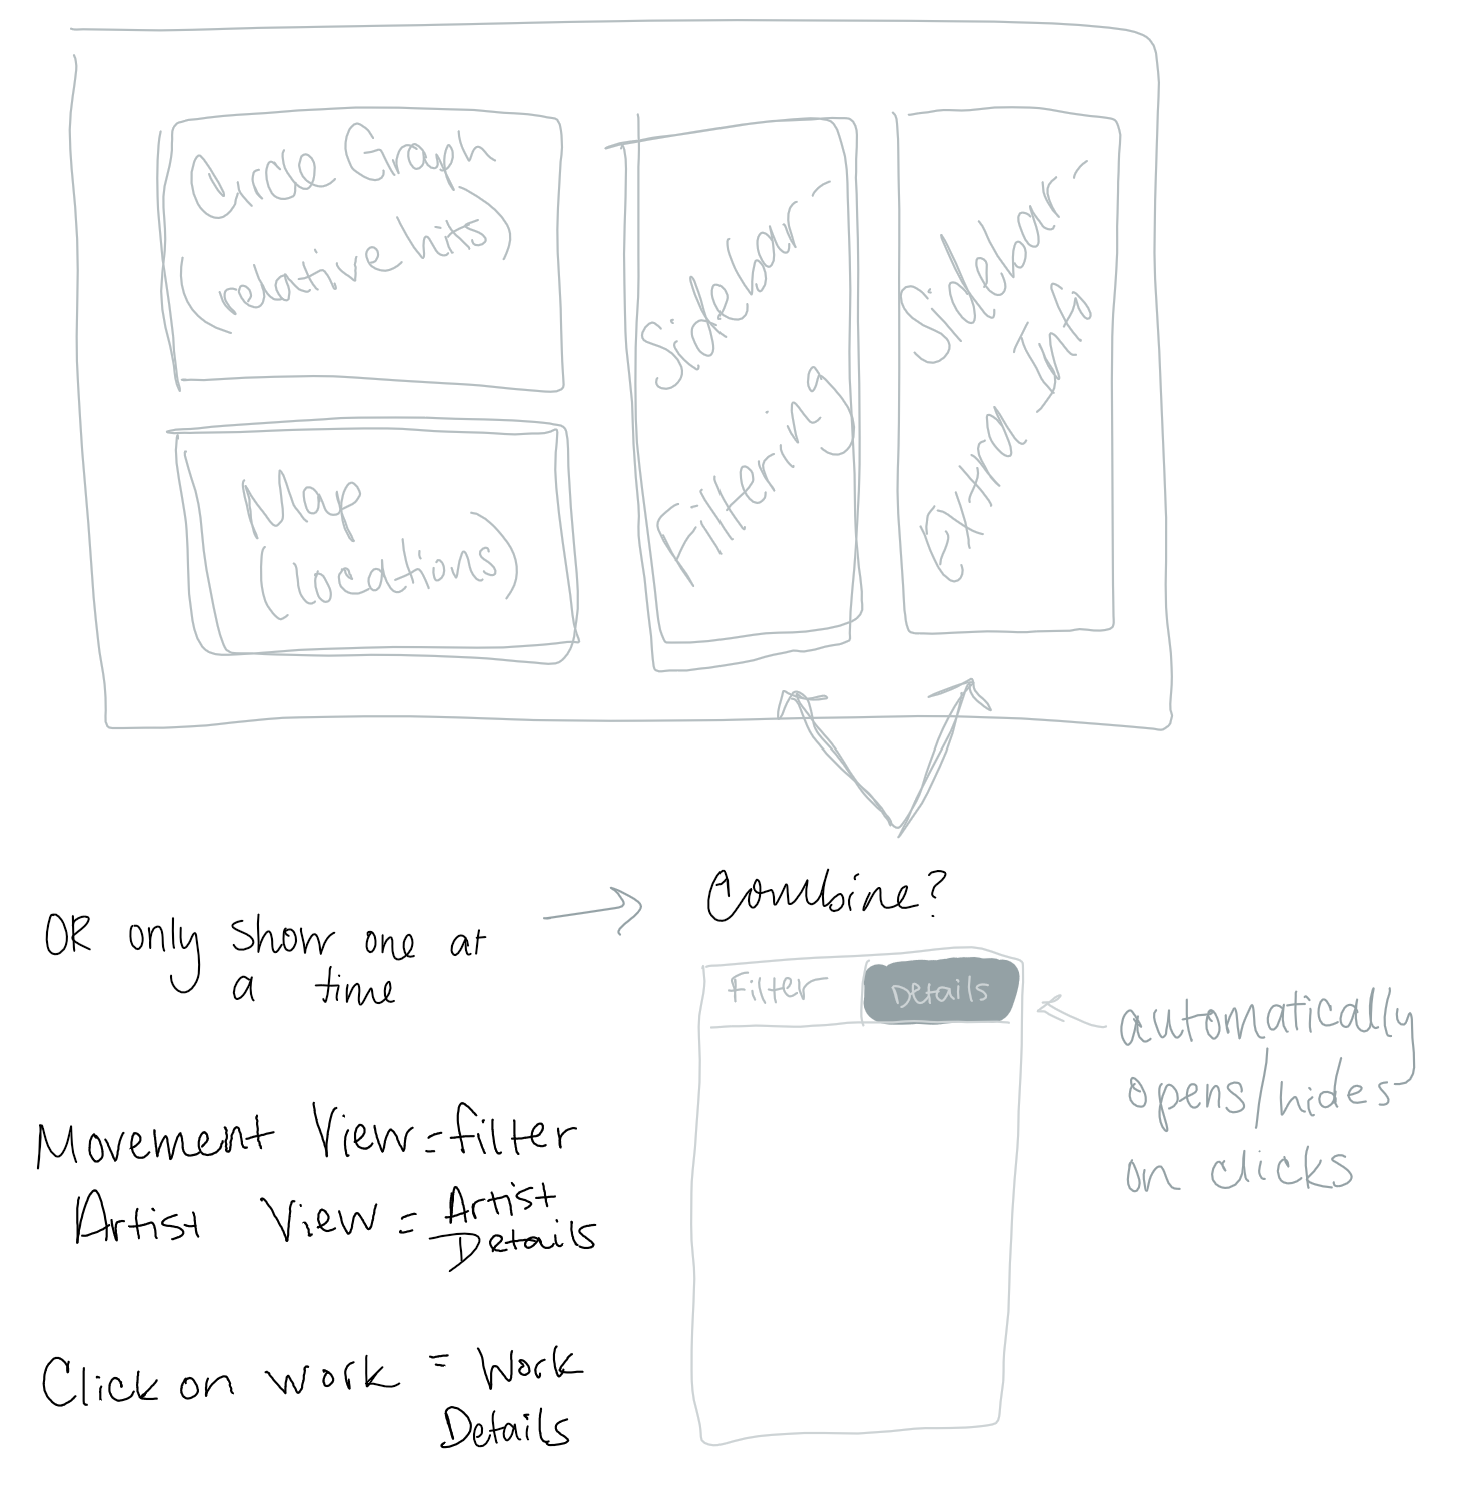 Circle Graph
(relative hits)
Map
(locations)
Sidebar-
Filtering
Sidebar-
Extra Info
Combine?
OR only show one at
a time
Filter
Details
automatically
opens/hides
on clicks
Movement View = filter
Artist View = Artist
Details
Click on work = Work
Details